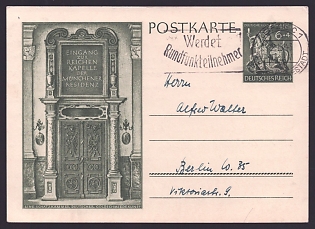 POSTKARTE
Werdet
Rundfunkteilnehmer
6+4
DEUTSCHES REICH
EINGANG
DER REICHEN
KAPELLE
DER
MÜNCHENER
RESIDENZ
Herrn
Alfred Walter
Berlin
Viktoriastr. 9.